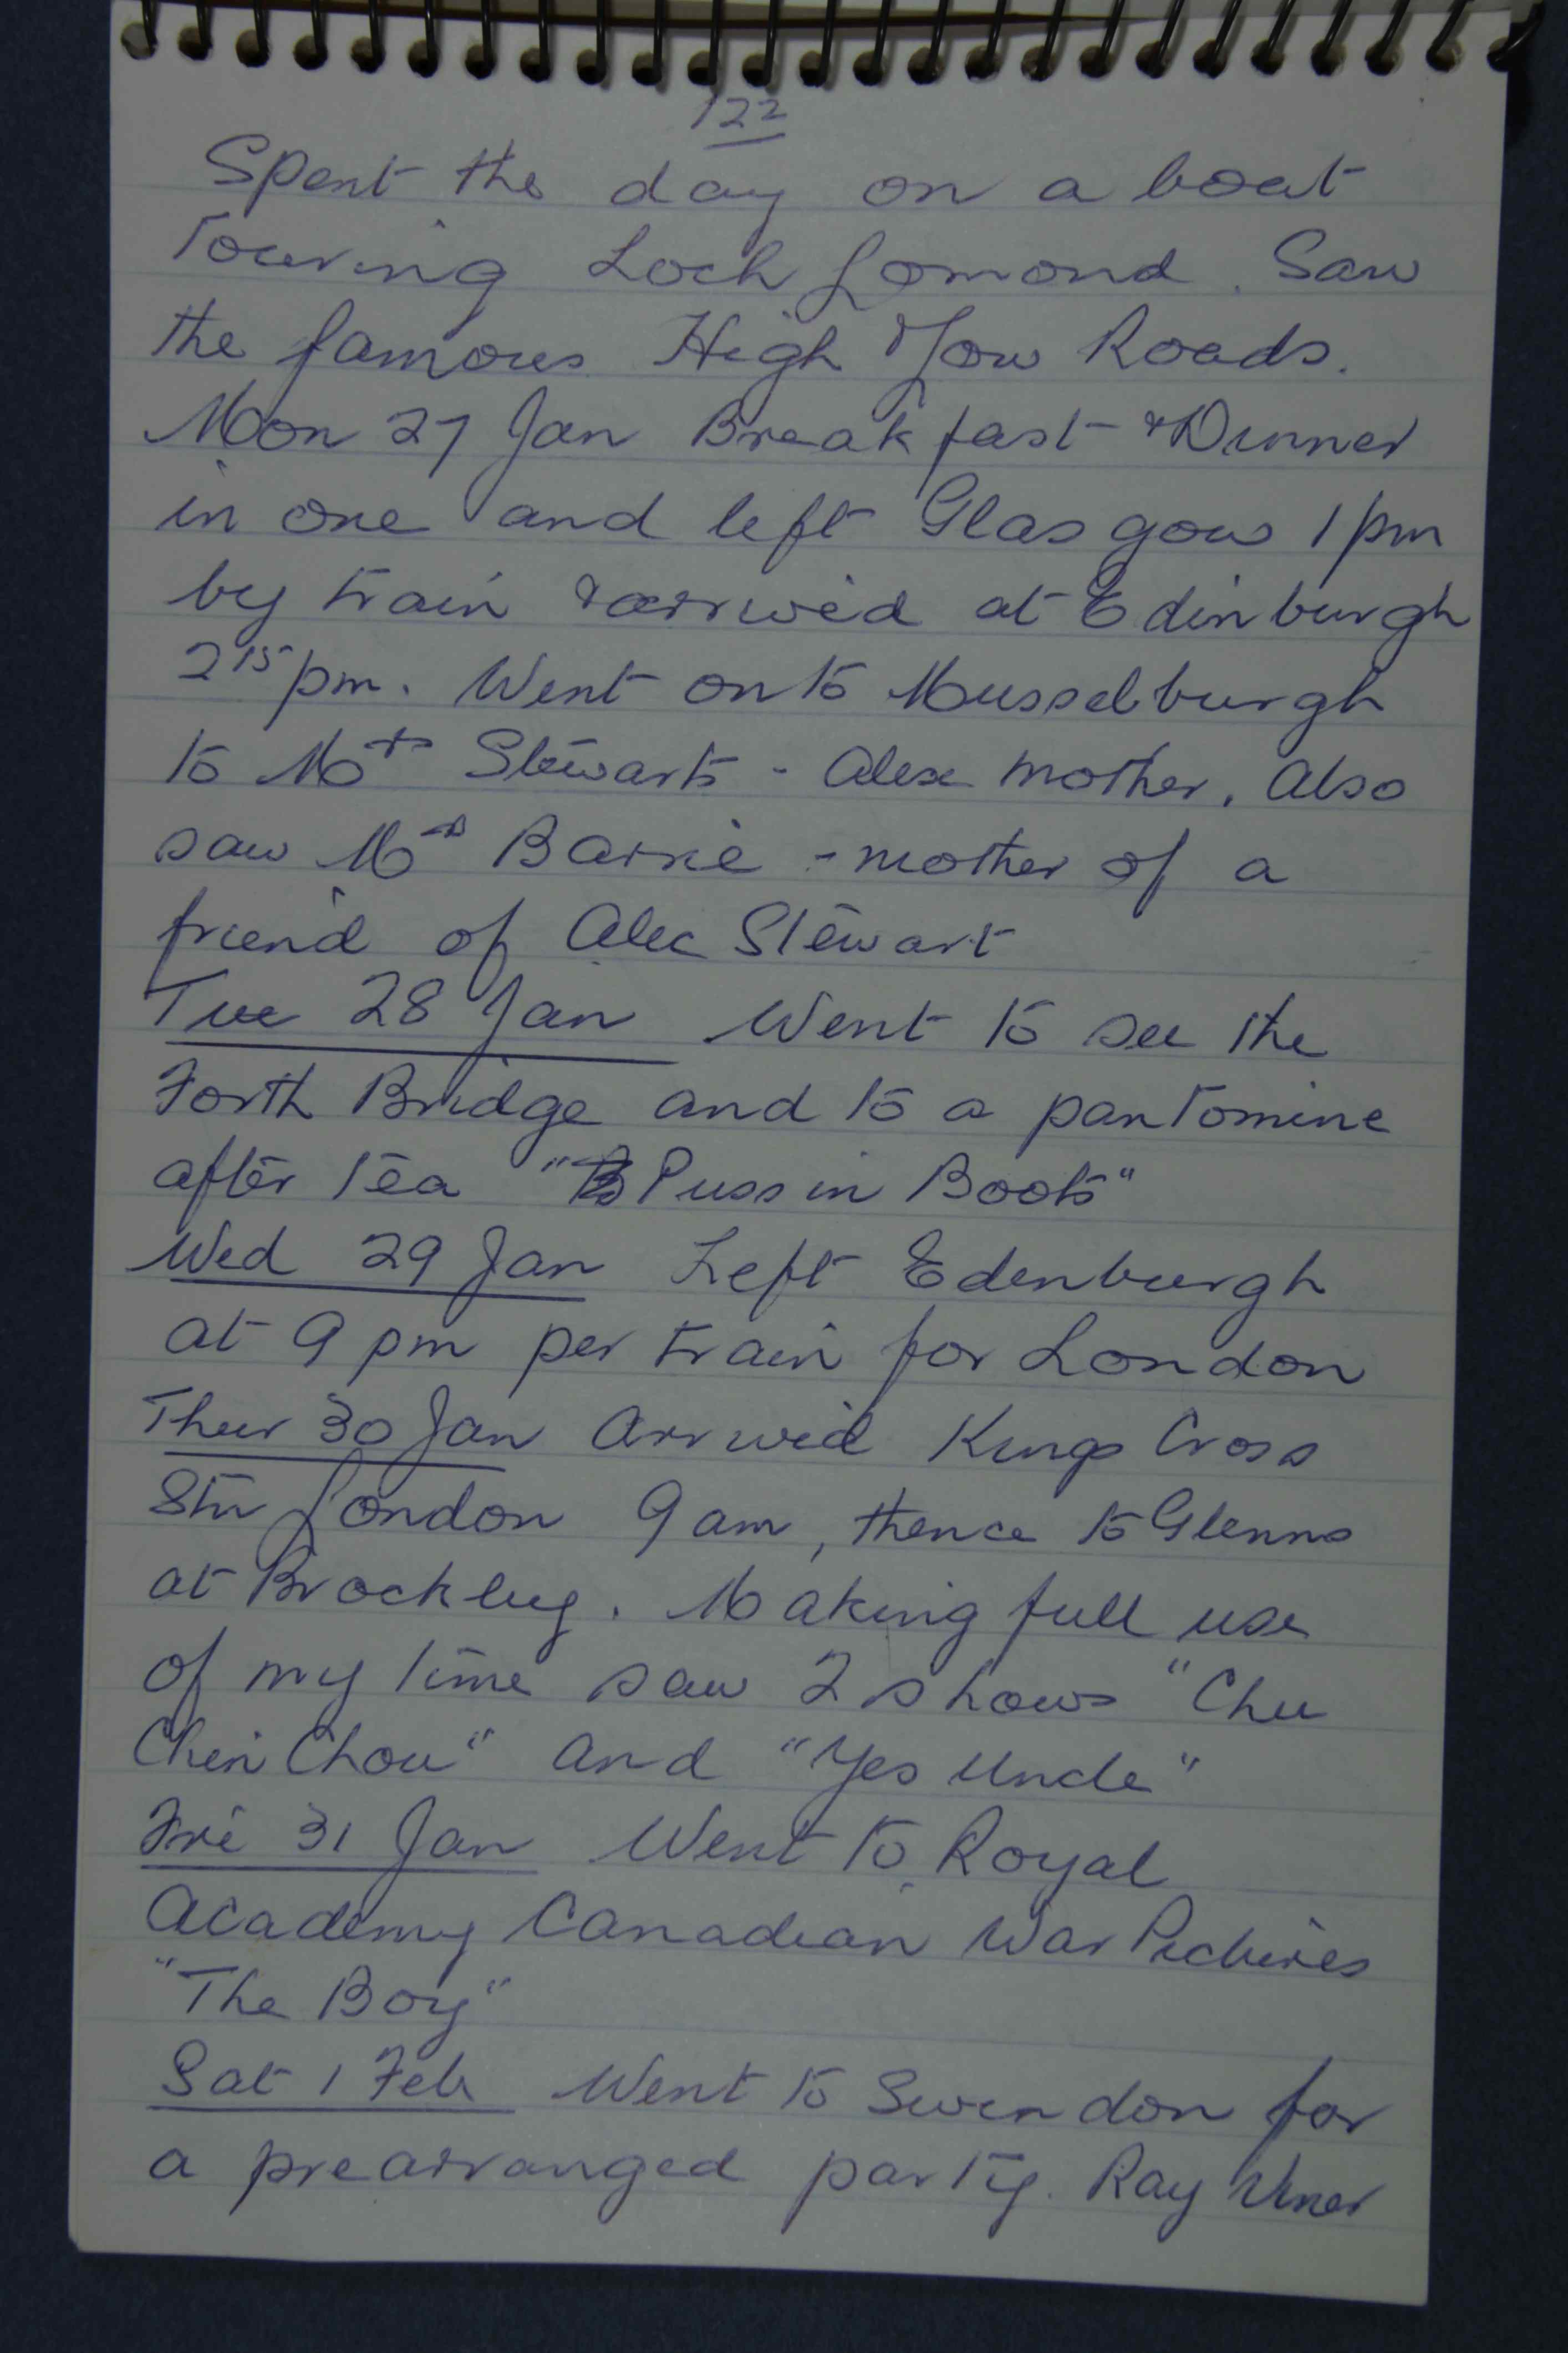 122
Spent the day on a boat
Touring Loch Lomond. Saw
the famous High & Low Roads.
Mon 27 Jan Breakfast & Dinner
in one and left Glasgow 1 pm
by train & arrived at Edinburgh
2 15 pm. Went on to Musselburgh
to Mrs Stewarts - Alex mother. Also
saw Mrs Barrie - mother of a
friend of Alec Stewart
Tue 28 Jan Went to see the
Forth Bridge and to a pantomine
after tea "Puss in Boots"
Wed 29 Jan Left Edenburgh
at 9 pm per train for London
Thur 30 Jan Arrived Kings Cross
Stn London 9 am, thence to Glenns
at Brockley. Making full use
of my time saw 2 shows "Chu
Chin Chou" and "Yes Uncle"
Fri 31 Jan Went to Royal
Academy Canadian War Pictures
"The Boy"
Sat 1 Feb Went to Swindon for
a prearranged party. Ray